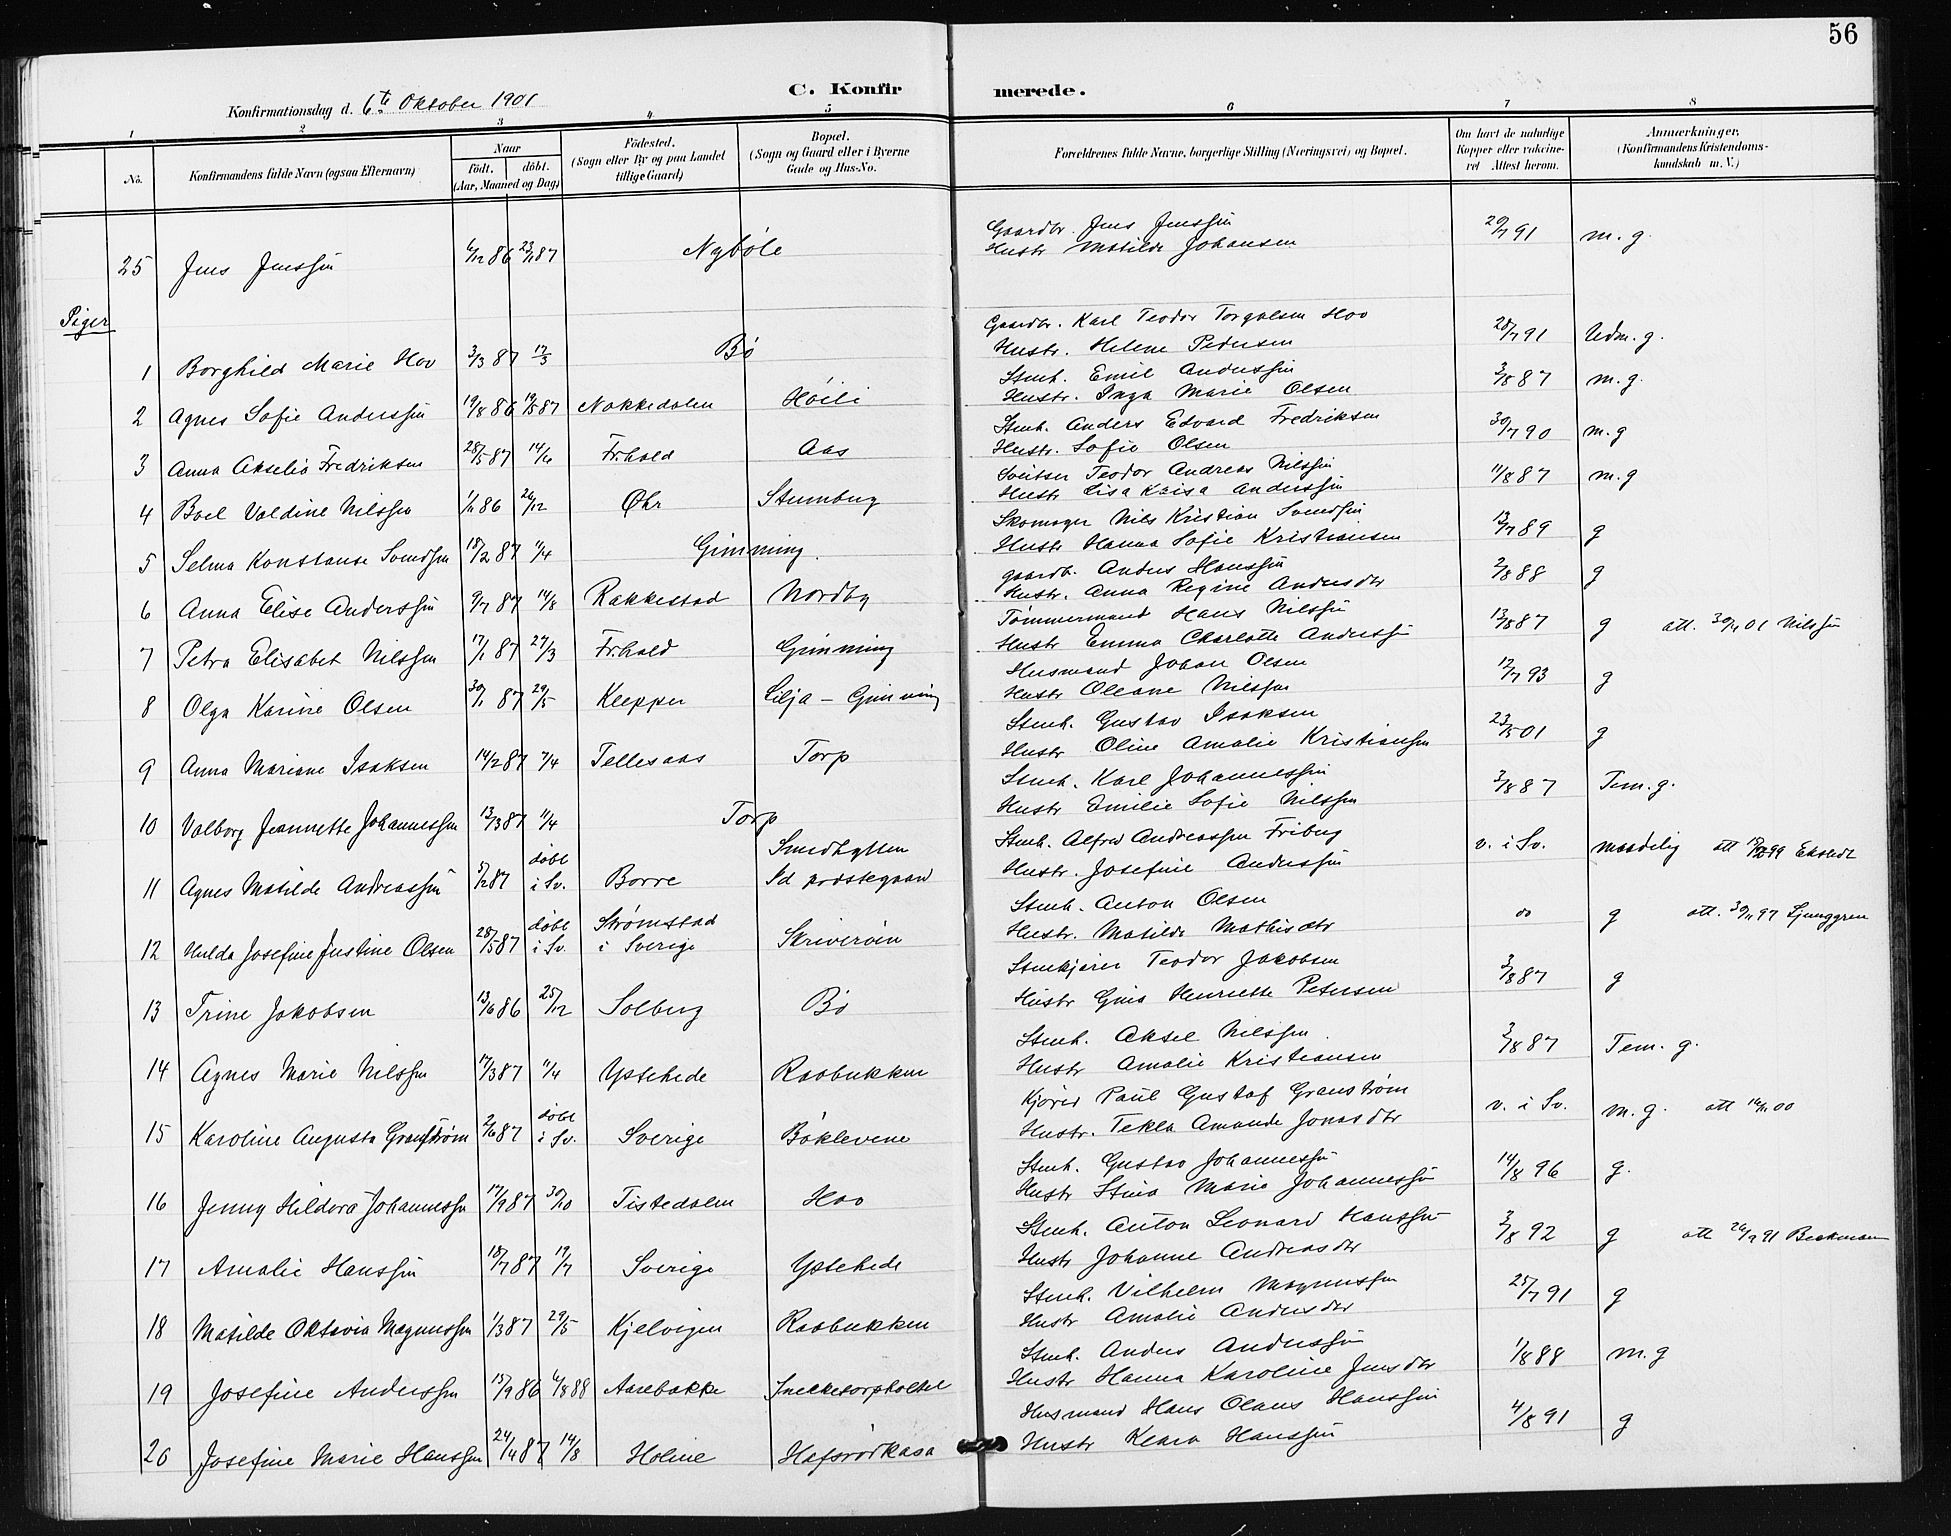 56
C. Konfir merede.
Konfirmationsdag d. 6te Oktober 1901
1 2 3 4 5 6 7 8
No. Konfirmandens fulde Navn (ogsaa Efternavn) Naar født. døbt. (Aar, Maaned og Dag) Fødested. (Sogn eller By og paa Landet tillige Gaard) Bopæl. (Sogn og Gaard eller i Byerne Gade og Hus-No. Forældrenes fulde Navne, borgerlige Stilling (Næringsvei) og Bopæl. Om havt de naturlige Kopper eller vakcineret Attest herom. Anmærkninger, (Konfirmandens Kristendomskundskab m. V.)
Gaardbr. Jens Jenssen
25 Jens Jenssen 6/12 86 23/1 87 Nybøle Hustr Matilde Johansen 29/7 91 m. g.
Piger
Gaardbr. Karl Teodor Torgalsen Hov
1 Borghild Marie Hov 3/3 87 17/3 Bø Hustr. Helene Pedersen 28/7 91 Udm. g.
Stenh. Emil Anderssen
2 Agnes Sofie Anderssen 19/8 86 19/5 87 Nakkedalen Høili Hustr. Inga Marie Olsen 3/8 87 m. g.
Stenh. Anders Edvard Fredriksen
3 Anna Akselia Fredriksen 28/5 87 14/6 Fr.hald Aas Hustr. Sofie Olsen 30/7 90 m. g
Sveitser Teodor Andreas Nilssen
4 Boel Valdine Nilssen 1/11 86 26/12 Øhr Stumberg Hustr Lisa Kaisa Anderssen 11/8 87 m. g
Skomager Nils Kristian Svendsen
5 Selma Konstanse Svendsen 18/2 87 11/4 Gimming. Hustr Hanna Sofie Kristiansen 13/7 89 g
gaardb. Anders Hanssen
6 Anna Elise Anderssen 9/7 87 14/8 Rakkestad Nordby Hustr. Anna Regine Andersdtr 2/8 88 g
Tømmermand Hans Nilssen
7 Petra Elisabet Nilssen 17/1 87 27/3 Fr.hald Gimming Hustr Emma Charlotte Anderssen 13/8 87 g att. 30/4 01 Nilssen
Husmand Johan Olsen
8 Olga Karine Olsen 30/1 87 29/5 Klepper Lilja - Gimming Hustr Oleane Nilssen 12/7 93 g
Stenh. Gustav Isaksen
9 Anna Mariane Isaksen 14/2 87 7/4 Tellesaas Torp Hustr Oline Amalie Kristiansen 23/5 01 g
Stenh. Karl Johannessen
10 Valborg Jeannette Johannessen 13/3 87 11/4 Torp Hustr Emilie Sofie Nilssen 3/8 87 Tem. g.
Smedhytten Stenh. Alfred Andreassen Friberg
11 Agnes Matilde Andreassen 5/2 87 døbt i Sv. Borre Id præstegaard Hustr. Josefine Anderssen v. i Sv. maadelig att 99 Ekstedt
Stenh. Anton Olsen
12 Hulda Josefine Justine Olsen 28/5 87 døbt i Sv. Strømstad i Sverige Skriverøen Hustr. Matilde Mathisdtr do g att. 30/11 97 Ljunggren
Stenkjører Teodor Jakobsen
13 Trine Jakobsen 13/6 86 25/12 Solberg Bø Hustr Gina Henriette Petersen 3/8 87 g
Stenh. Aksel Nilssen
14 Agnes Marie Nilssen 17/3 87 11/4 Ystehede Raabukken Hustr Amalie Kristiansen 3/8 87 Tem. g.
Kjører Paul Gustaf Granstrøm
15 Karoline Augusta Granstrøm 2/6 87 døbt i Sv. Sverige Bøklevene Hustr. Tekla Amanda Jonasdtr v. i Sv. m. g. att 14/11 00
Stenh. Gustav Johannessen
16 Jenny Hildora Johannessen 17/9 87 30/10 Tistedalen Hov Hustr Stina Maria Johannessen 14/8 96 g.
Stenh. Anton Leonard Hanssen
17 Amalie Hanssen 18/7 87 19/7 Sverige Ystehede Hustr Johanne Andreasdtr 3/8 92 g att 26/9 91 Beckman
Stenh. Vilhelm Magnussen
18 Matilde Oktavia Magnussen 1/3 87 29/5 Kjelvigen Raabukken Hustr Amalie Andersdtr 25/7 91 g
Stenh. Anders Anderssen
19 Josefine Anderssen 15/9 86 6/8 88 Aarebakke Sneketorpholtet Hustr Hanna Karoline Jensdtr 1/8 88 m. g
Husmand Hans Olaus Hanssen
20 Josefine Marie Hanssen 24/4 87 14/8 Holine Hafsrødkasa Hustr Klara Hanssen 4/8 91 g